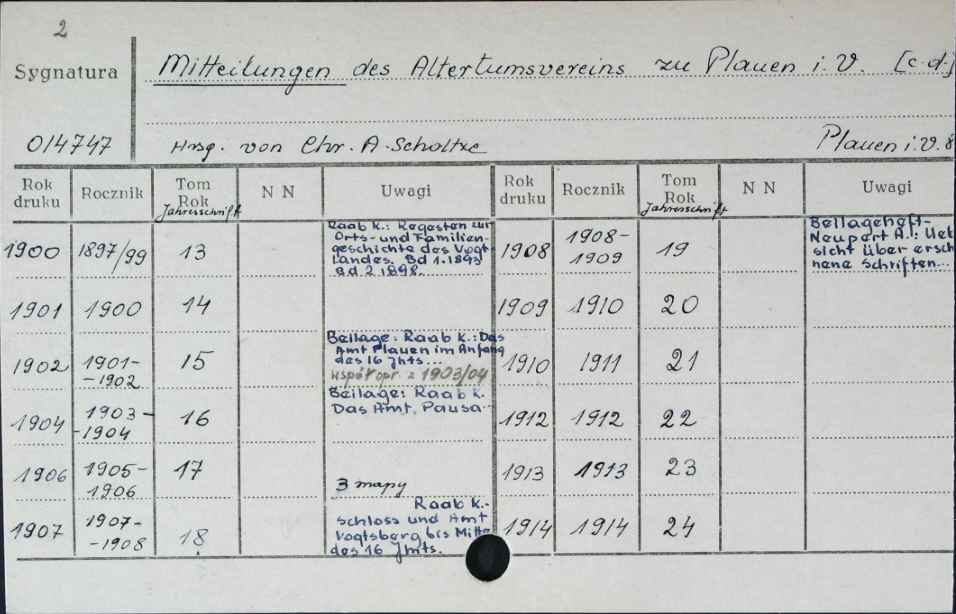 2
Sygnatura
Mitteilungen des Altertumsvereins zu Plauen i. V. [c.d.]
014747
Hrsg. von Chr. A. Scholtze
Plauen i. V. 8
Rok druku Rocznik Tom Rok Jahresschrift N N Uwagi Rok druku Rocznik Tom Rok Jahresschrift N N Uwagi
1900 1897/99 13
Raab K.: Regesten zur
Orts- und Familien-
geschichte des Vogt-
landes. Bd 1.1893
Bd 2 1898.
1901 1900 14
1902 1901-
-1902 15
Beilage: Raab K.: Das
Amt Plauen im Anfang
des 16 Jhts...
współopr z 1903/04
1904 1903-
-1904 16
Beilage: Raab K.
Das Amt, Pausa-
1906 1905-
1906 17
3 mapy
1907 1907-
-1908 18
Raab K.-
Schloss und Amt
Vogtsberg bis Mitte
des 16 Jhts.
1908 1908-
1909 19
Beilageheft-
Neupert A.: Ueb
sicht über ersch
nene Schriften...
1909 1910 20
1910 1911 21
1912 1912 22
1913 1913 23
1914 1914 24